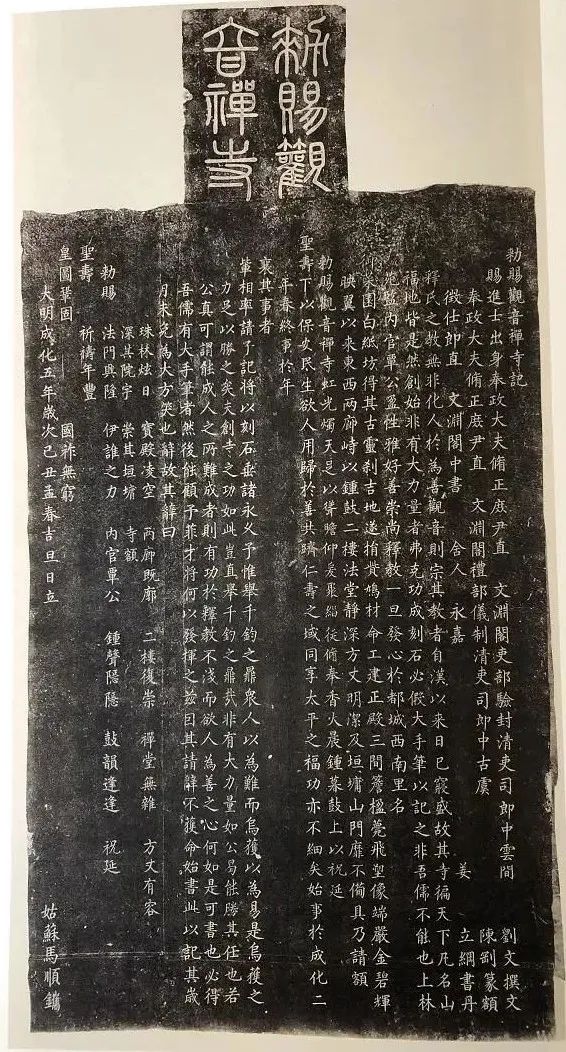 勑賜觀
音禪寺
勑賜觀音禪寺記
賜進士出身奉政大夫脩正庶尹直 文淵閣吏部驗封清吏司郎中雲間 劉文撰文
奉政大夫脩正庶尹直 文淵閣禮部儀制清吏司郎中古虞 陳剛篆額
徵仕郎直 文淵閣中書 舍人 永嘉 姜立綱書丹
釋氏之教無非化人於為善觀音則宗其教者自漢以來日已寖盛故其寺徧天下凡名山
福地皆是然創始非有大力量者弗克功成刻石必假大手筆以記之非吾儒不能也上林
苑監內官覃公盈性雅好善崇尚釋教一旦發心於都城西南里名
菜園白紙坊得其古靈剎吉地遂捐貲鳩材命工建正殿三間簷楹甍飛聖像端嚴金碧輝
映翼以來東西兩廊峙以鍾鼓二樓法堂靜深方丈明潔及垣墉山門靡不備具乃請額
勑賜觀音禪寺虹光燭天足以聳瞻仰爰聚緇徒脩奉香火晨鍾暮鼓上以祝延
聖壽下以保安民生欲人用歸於善共躋仁壽之域同享太平之福功亦不細矣始事於成化二
年春終事於年
襄其事者
輩相率請予記將以刻石垂諸永乂予惟舉千鈞之鼎眾人以為難而烏獲以為易是烏獲之
力足以勝之矣夫創寺之功如此豈直舉千鈞之鼎哉非有大力量如公易能勝其任也若
公真可謂能成人之所難成者則有功於釋教不淺而欲人為善之心何如是可書也必得
吾儒有大手筆者然後能顧予菲才將何以發揮之茲因其請辭不獲命始書此以記其歲
月未免為大方笑也辭故其辭曰
珠林炫日 寶殿凌空 兩廊既廓 二樓復崇 禪堂無雜 方丈有容
深其院宇 崇其垣墉 寺額
勑賜 法門興隆 伊誰之力 內官覃公 鍾聲隱隱 鼓韻逢逢 祝延
聖壽 祈禱年豐
皇圖鞏固 國祚無窮
大明成化五年歲次己丑孟春吉旦日立 姑蘇馬順鐫